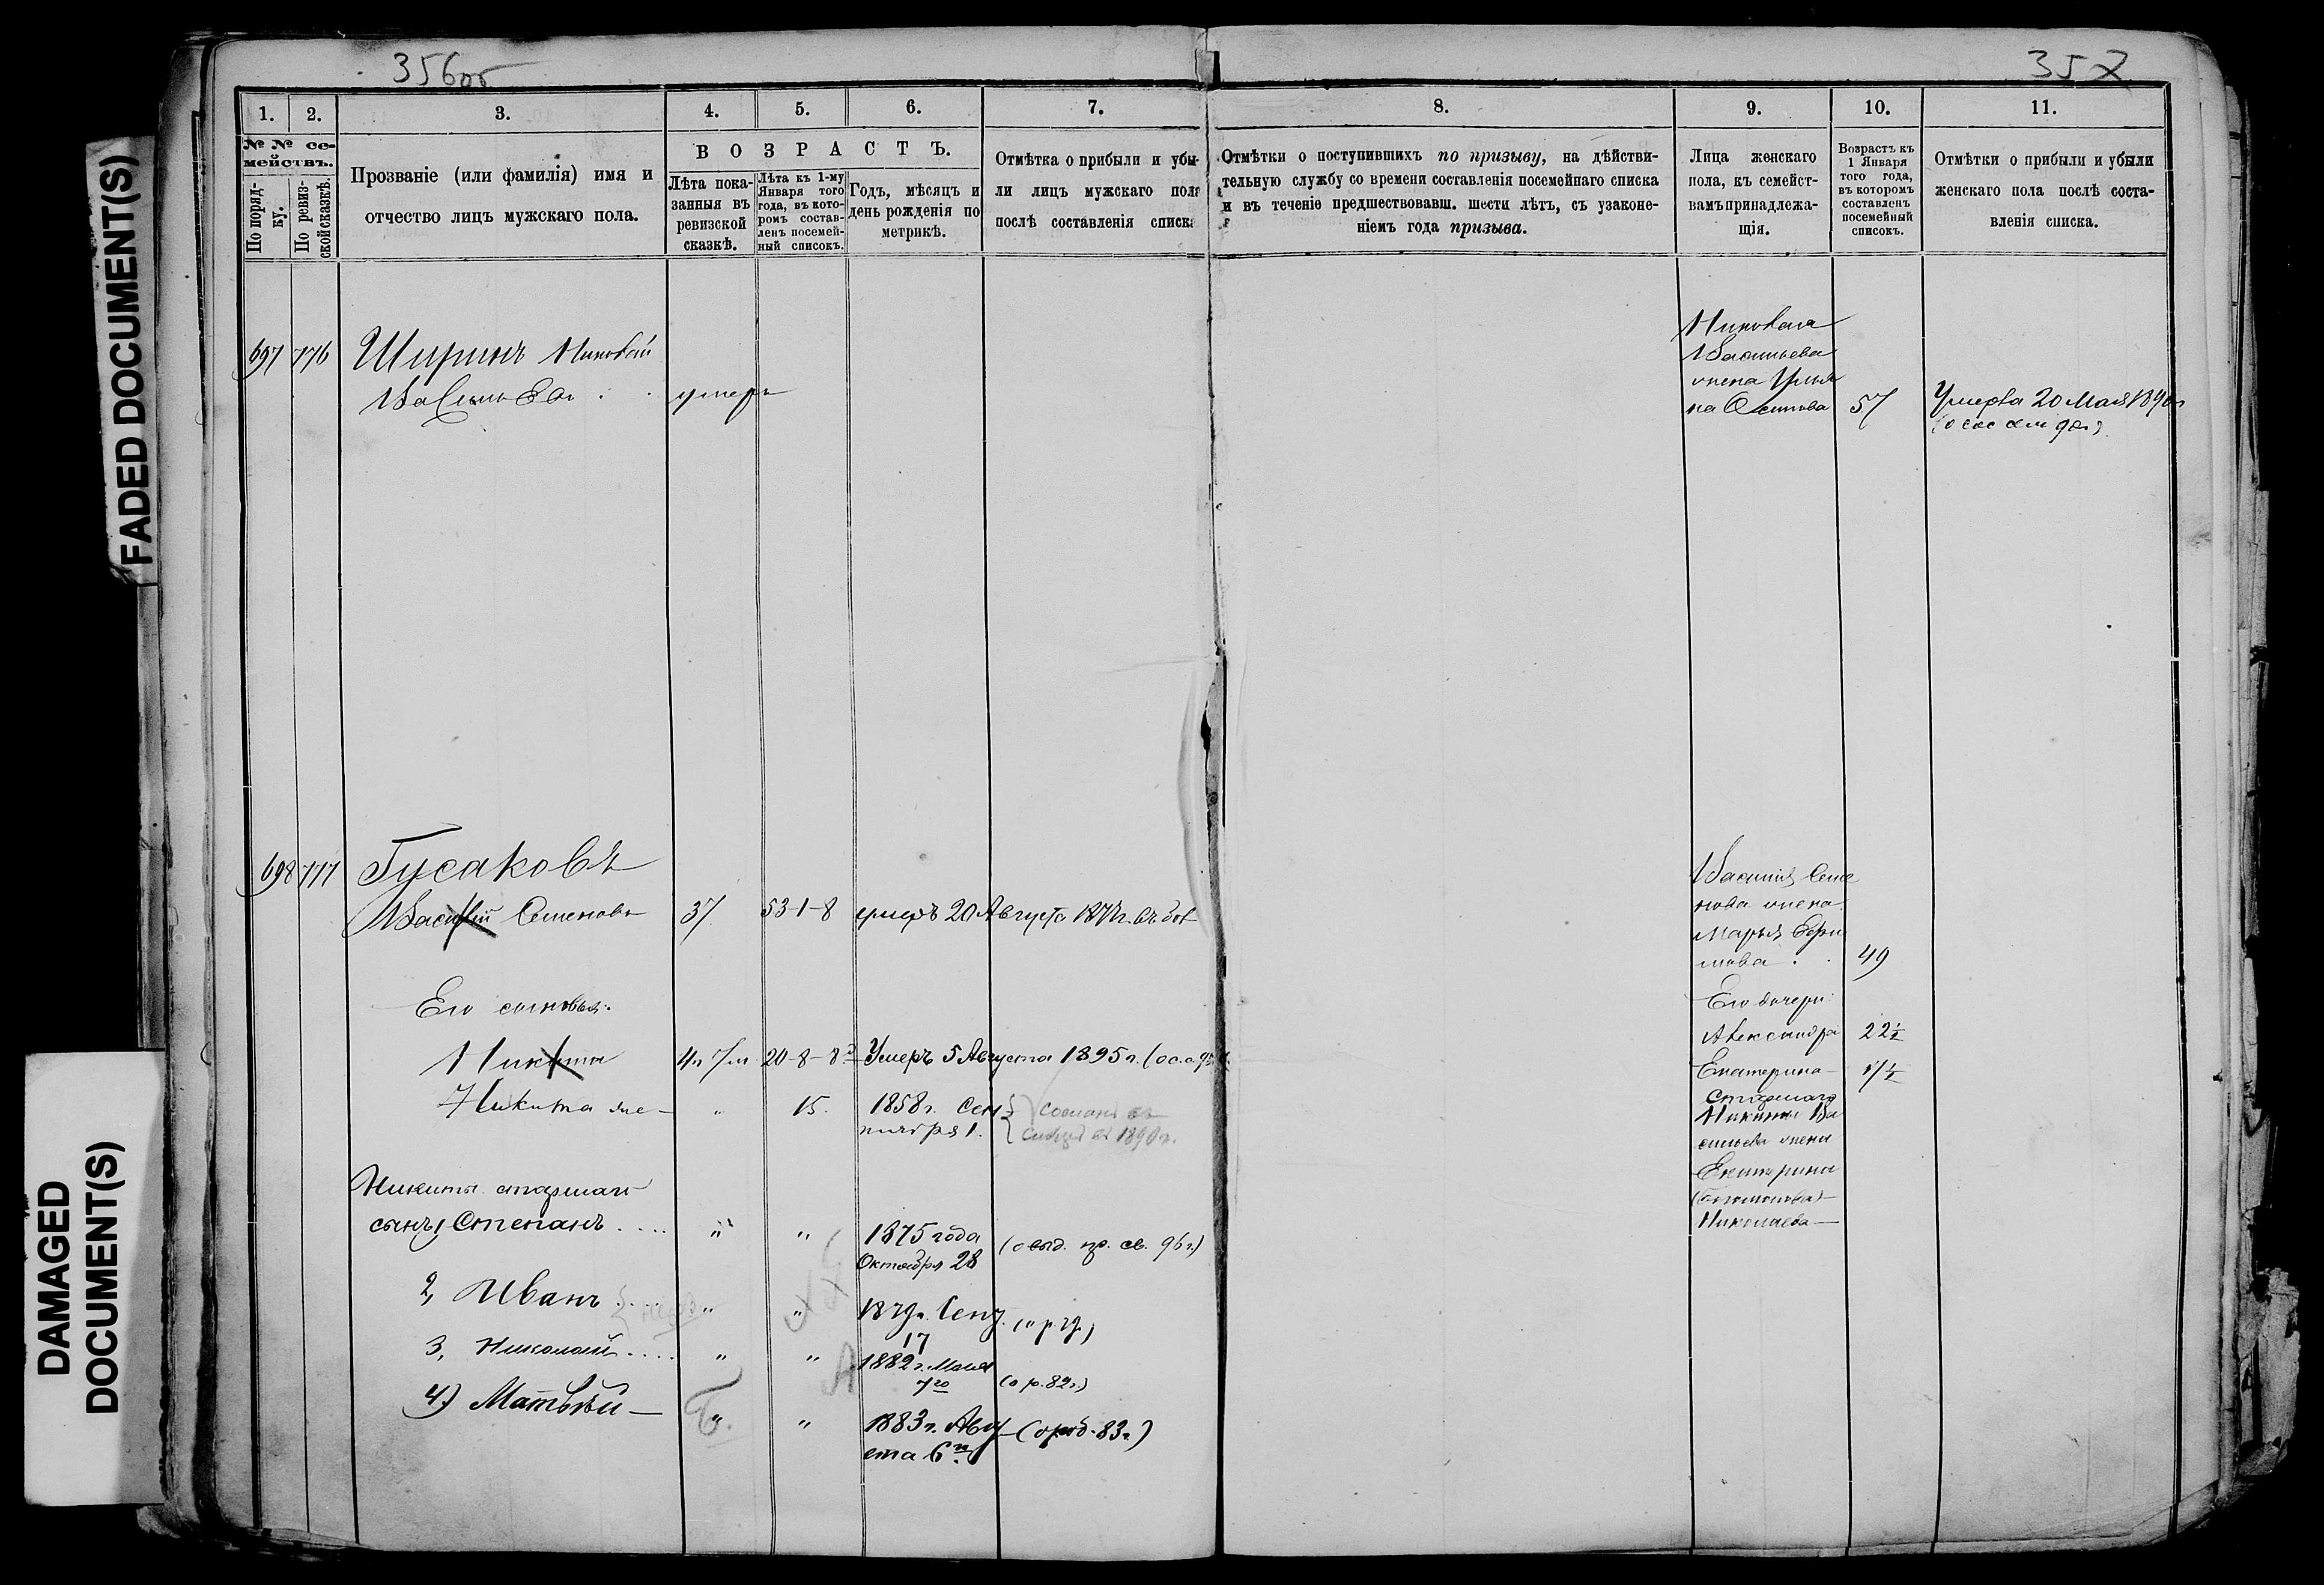 356об
357
FADED DOCUMENT(S)
DAMAGED
DOCUMENT(S)
1. 2. 3. 4. 5. 6. 7. 8. 9. 10. 11.
№ № се-
мействъ.
По поряд-
ку.
По ревиз-
ской сказкѣ.
Прозваніе (или фамилія) имя и
отчество лицъ мужскаго пола.
ВОЗРАСТЪ.
Лѣта пока-
занныя въ
ревизской
сказкѣ.
Лѣта къ 1-му
Января того
года, въ кото-
ромъ состав-
ленъ посемей-
ный списокъ.
Годъ, мѣсяцъ и
день рожденія по
метрикѣ.
Отмѣтка о прибыли и убы-
ли лицъ мужскаго пола
послѣ составленія списка
Отмѣтки о поступившихъ по призыву, на дѣйстви-
тельную службу со времени составленія посемейнаго списка
и въ теченіе предшествовавш. шести лѣтъ, съ узаконе-
ніемъ года призыва.
Лица женскаго
пола, къ семейст-
вамъ принадлежа-
щія.
Возрастъ къ
1 Января
того года,
въ которомъ
составленъ
посемейный
списокъ.
Отмѣтки о прибыли и убыли
женскаго пола послѣ соста-
вленія списка.
697 776 Ширинъ Николай
Васильевъ умеръ
Николая
Васильева
жена Улья
на Осипова 57 Умерла 20 Мая 189
698 777 Гусаковъ
Василій Семеновъ 37 53-1-8 умеръ 20 Августа
Василія Семе
нова жена
Марья Ефи
мова 49
Его сыновья:
Никита 4г. 7м. 20-8-8 Умеръ 5 Августа 1895 г.
Никита же — " 15. 1858 г. Сен
тября 1.
1890 г.
Его дочери:
Александра 22½
Екатерина
Старшаго
Никиты Ва
сильева жена
Екатерина
Николаева —
Никиты старшаго
сынъ, Степанъ . . . . " " 1875 года
Октября 28
2, Иванъ . . . . " " 1879 г. Сент.
17
3, Николай . . . . " " 1882 г. Мая
7го (о р. 82 г.)
4) Матвѣй — " " 1883 г. Авгу
ста 6го
А
Б.